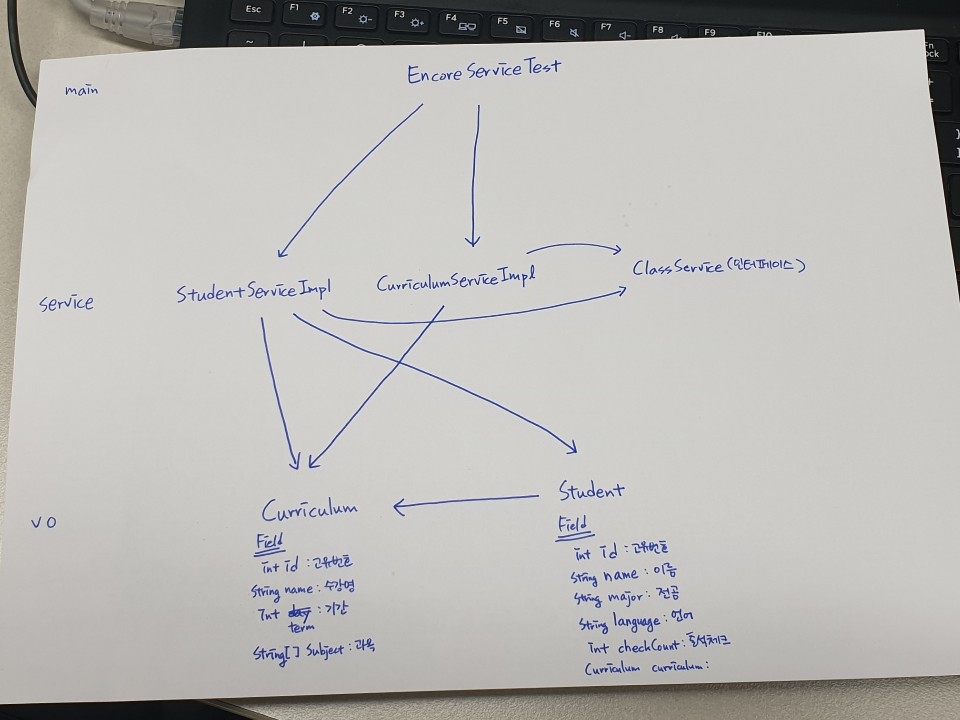 Esc F1 F2 F3 F4 F5 F6 F7 F8 F9 F10
main
EncoreServiceTest
service
StudentServiceImpl
CurriculumServiceImpl
ClassService(인터페이스)
VO
Curriculum
Field
int id : 고유번호
String name : 수강명
int day : 기간
term
String[] Subject : 과목
Student
Field
int id : 고유번호
String name : 이름
String major : 전공
String language : 언어
int checkCount : 출석체크
Curriculum curriculum :